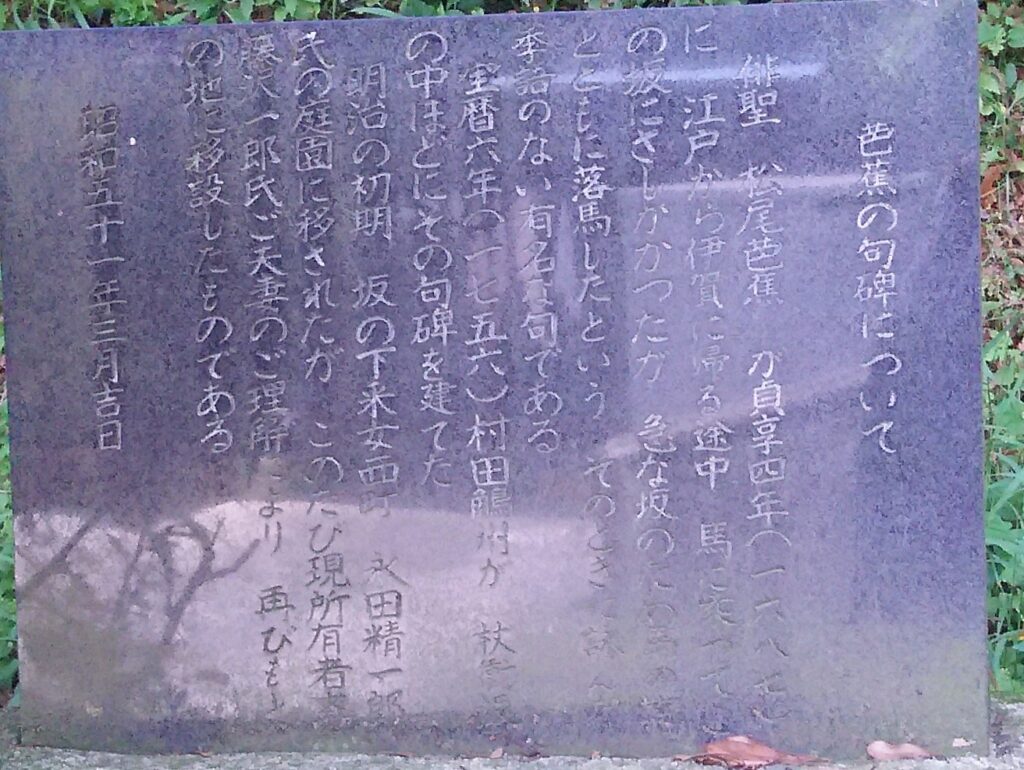 芭蕉の句碑について
俳聖 松尾芭蕉 が貞享四年(一六八七)
に 江戸から伊賀に帰る途中 馬にのつてこ
の坂にさしかかつたが 急な坂のため馬の鞍
とともに落馬したという そのときに詠んだ
季語のない有名な句である
宝暦六年(一七五六)村田鵤州が 杖衝坂
の中ほどにその句碑を建てた
明治の初期 坂の下采女西町 永田精一郎
氏の庭園に移されたが このたび現所有者
藤沢一郎氏ご夫妻のご理解により 再びもと
の地に移設したものである
昭和五十一年三月吉日